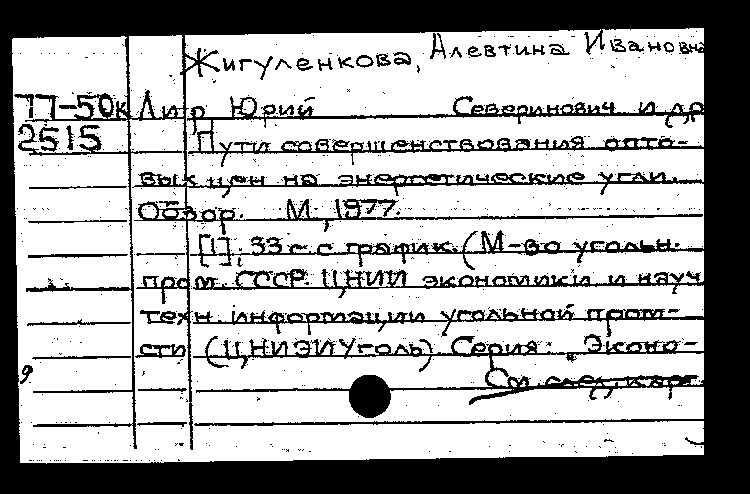 Жигуленкова, Алевтина Ивановна
77-50к Лир Юрий Северинович и др
2515 Пути совершенствования опто-
вых цен на энергетические угли.
Обзор. М., 1977.
[1], 33 с. с график. (М-во угольн.
пром. СССР. ЦНИИ экономики и науч
техн. информации угольной пром-
сти (ЦНИЭИУголь). Серия: "Эконо-
См. след. карт.